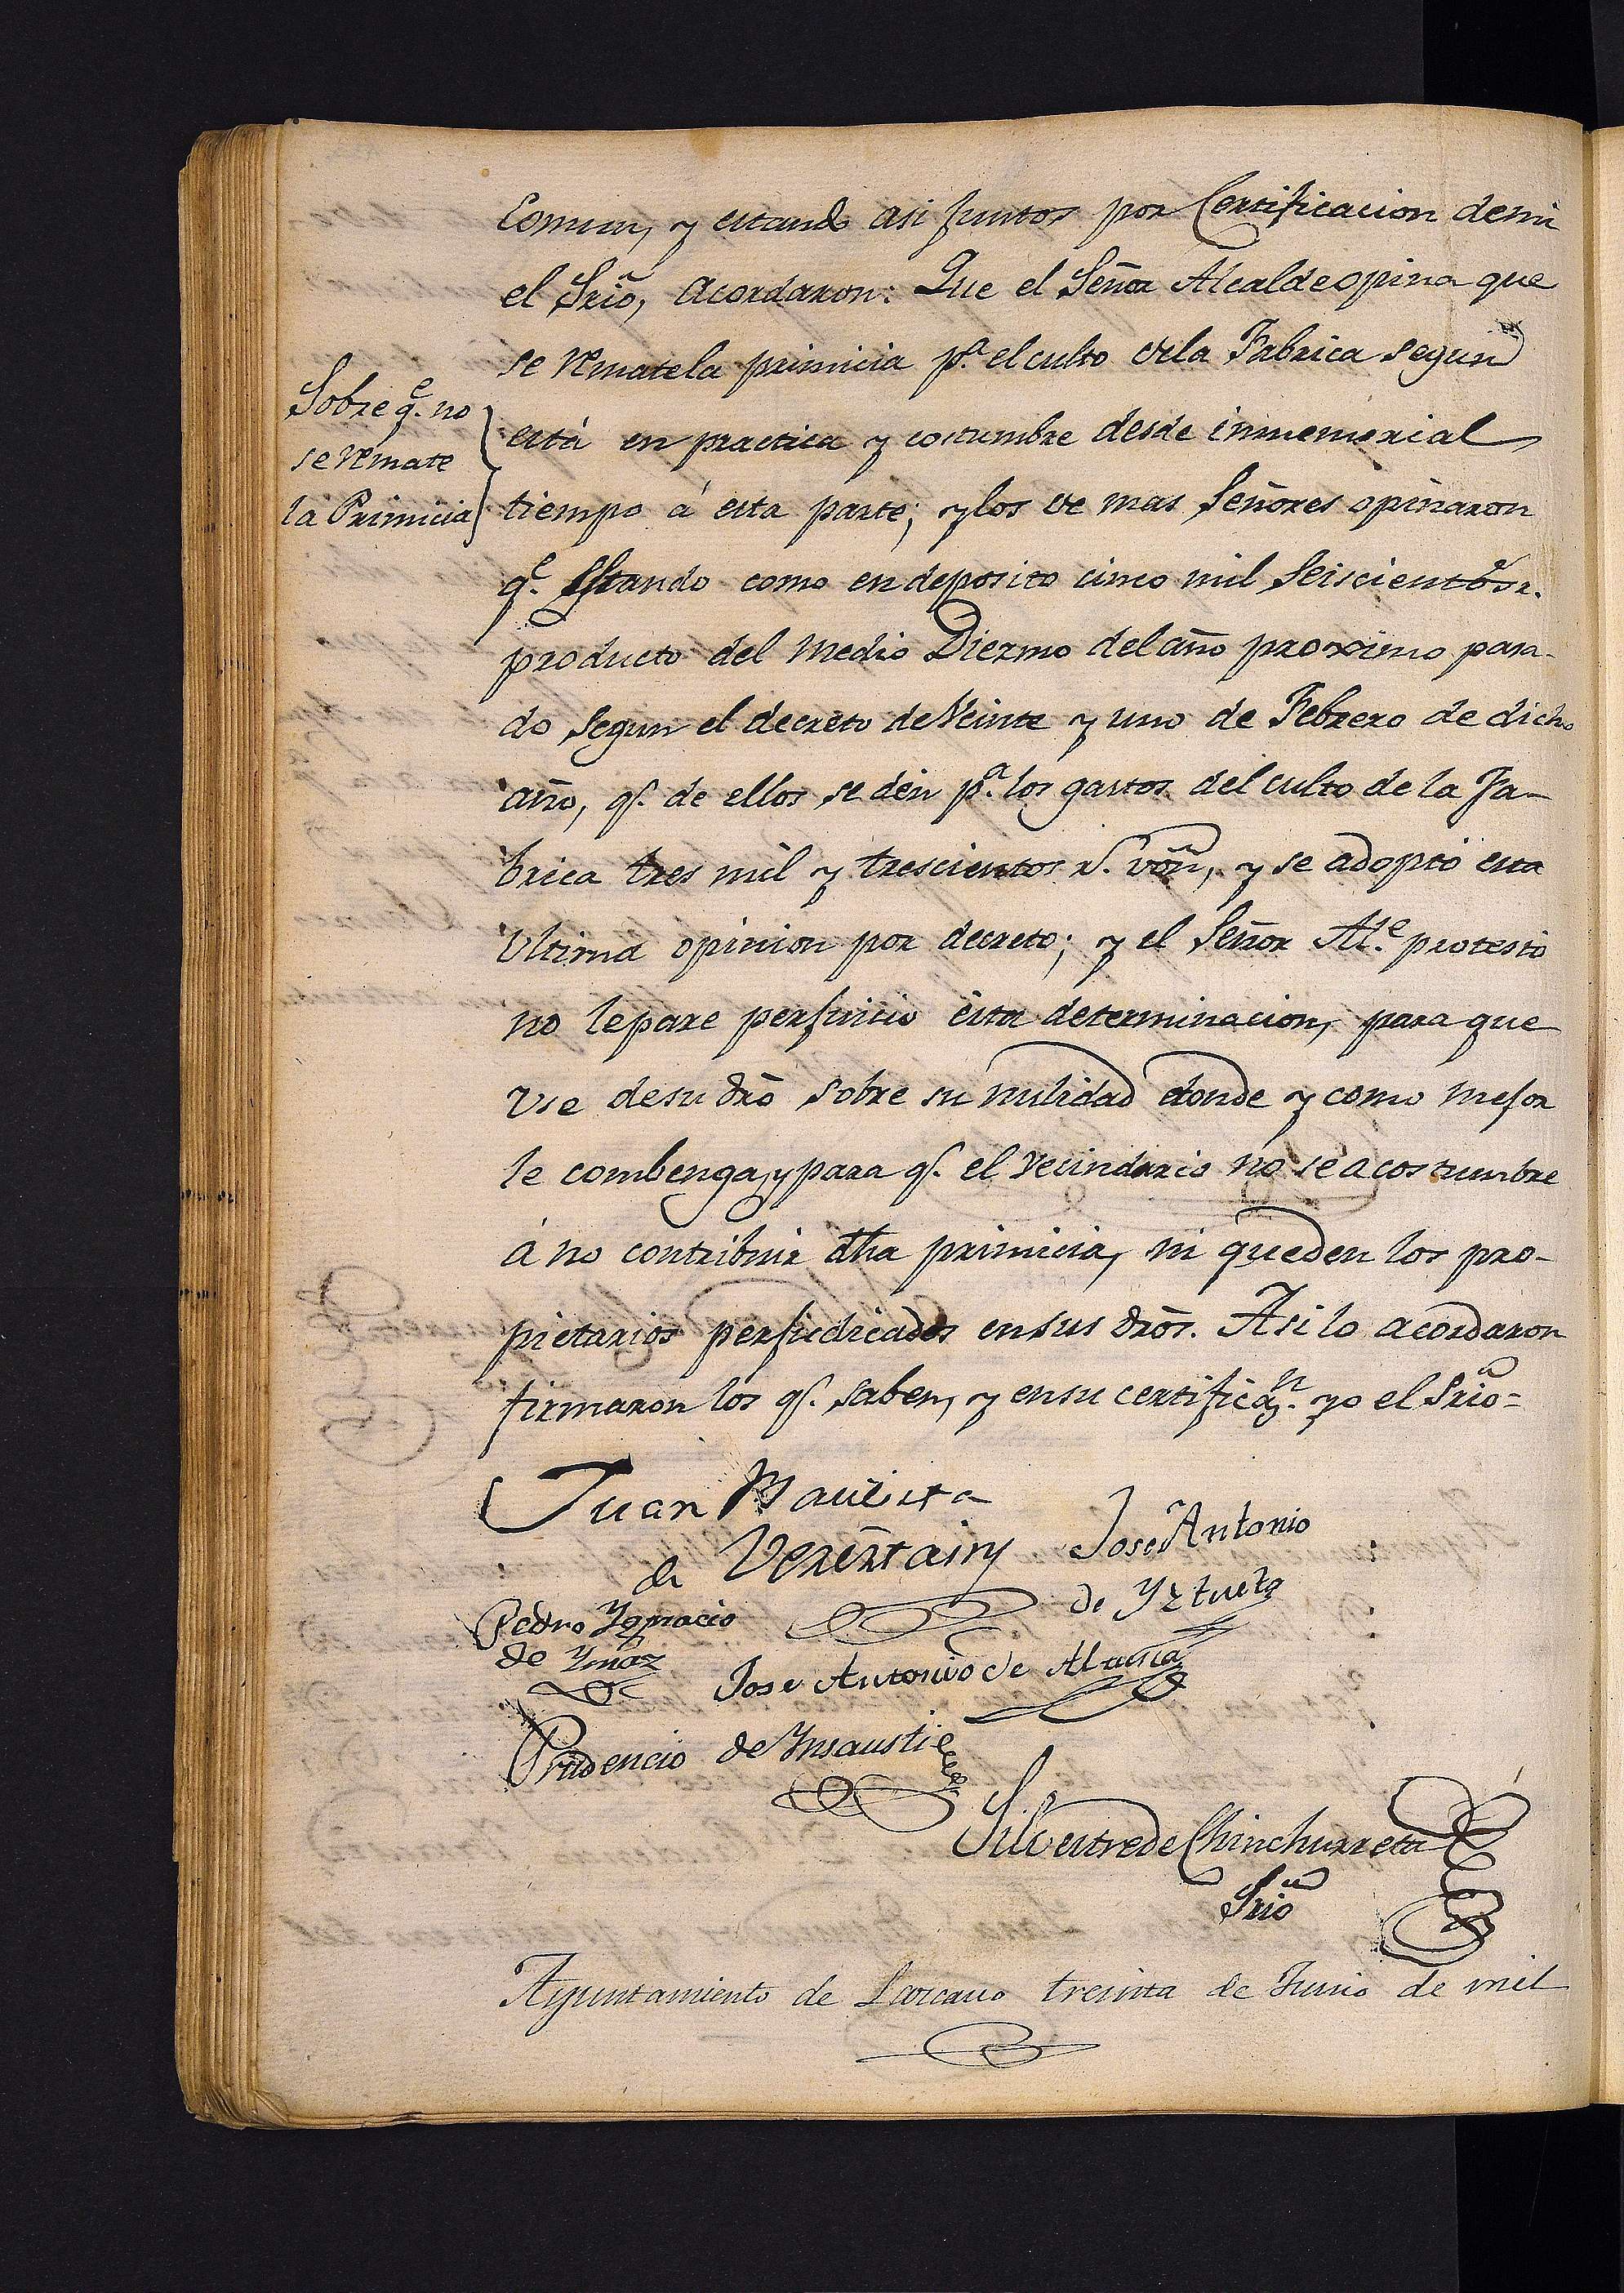 Comun, y estando asi juntos por Certificacion demi
el Srio, acordaron: Que el Señor Alcalde opina que
se rematela primicia pª. el culto dela Fabrica segun
Sobre qe. no
se remate
la Primicia
está en practica y costumbre desde inmemorial
tiempo á esta parte; y los de mas Señores opinaron
qe. estando como en deposito cinco mil seiscientos r.
producto del medio Diezmo del año proximo pasa-
do segun el decreto de Veinte y uno de Febrero de dicho
año, q. de ellos se den pª. los gastos del culto de la Fa-
brica tres mil y trescientos r. von, y se adoptó esta
Ultima opinion por decreto; y el Señor Ale. protestó
no lepare perjuicio esta determinacion, para que
Use desu dro sobre su nulidad donde y como mejor
le combenga, y para q. el vecindario no se acostumbre
á no contribuir dha primicia, ni queden los pro-
pietarios perjudicados ensus dros. Asi lo acordaron
firmaron los q. saben, y ensu certificªn. yo el Srio=
Juan Bautista
de
Jose Antonio
de Yztueta
Pedro Ygnacio
de Ymaz
Jose Antonio de Alausta
Prudencio de Ynsausti
Silvestre de Chinchurreta
Srio
Ayuntamiento de Lazcano treinta de Junio de mil